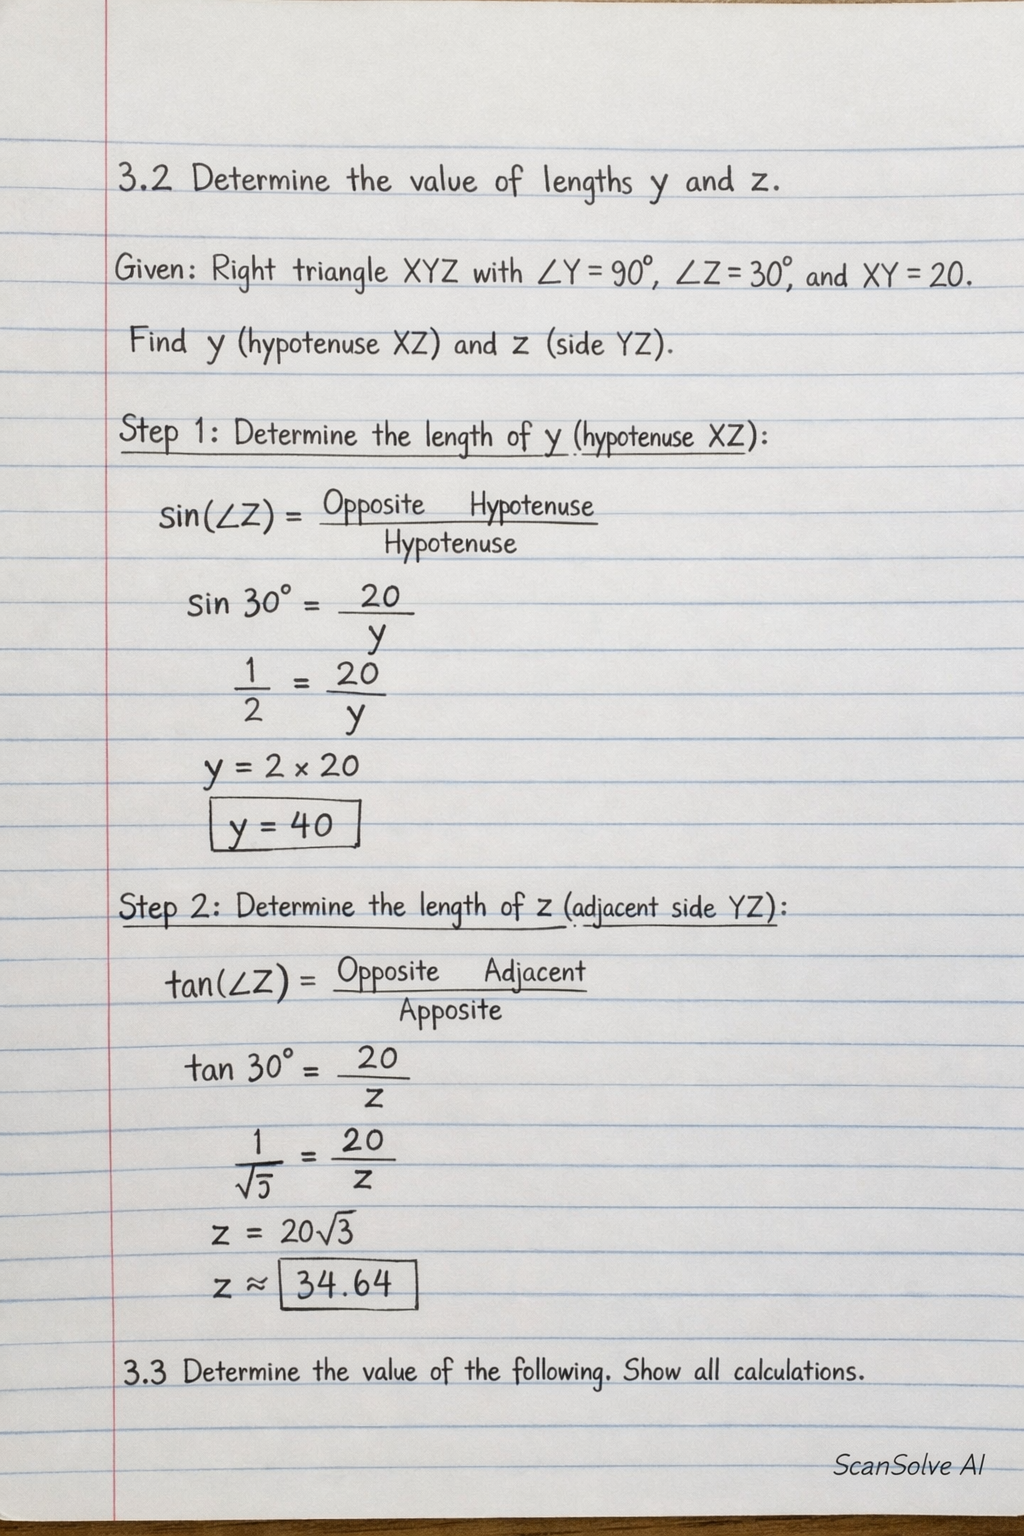 3.2 Determine the value of lengths y and z.
Given: Right triangle XYZ with ∠Y = 90°, ∠Z = 30°, and XY = 20.
Find y (hypotenuse XZ) and z (side YZ).
Step 1: Determine the length of y (hypotenuse XZ):
sin(∠Z) = Opposite Hypotenuse
Hypotenuse
sin 30° = 20
y
1 = 20
2 y
y = 2 × 20
y = 40
Step 2: Determine the length of z (adjacent side YZ):
tan(∠Z) = Opposite Adjacent
Apposite
tan 30° = 20
z
1 = 20
√5 z
z = 20√3
z ≈ 34.64
3.3 Determine the value of the following. Show all calculations.
ScanSolve AI